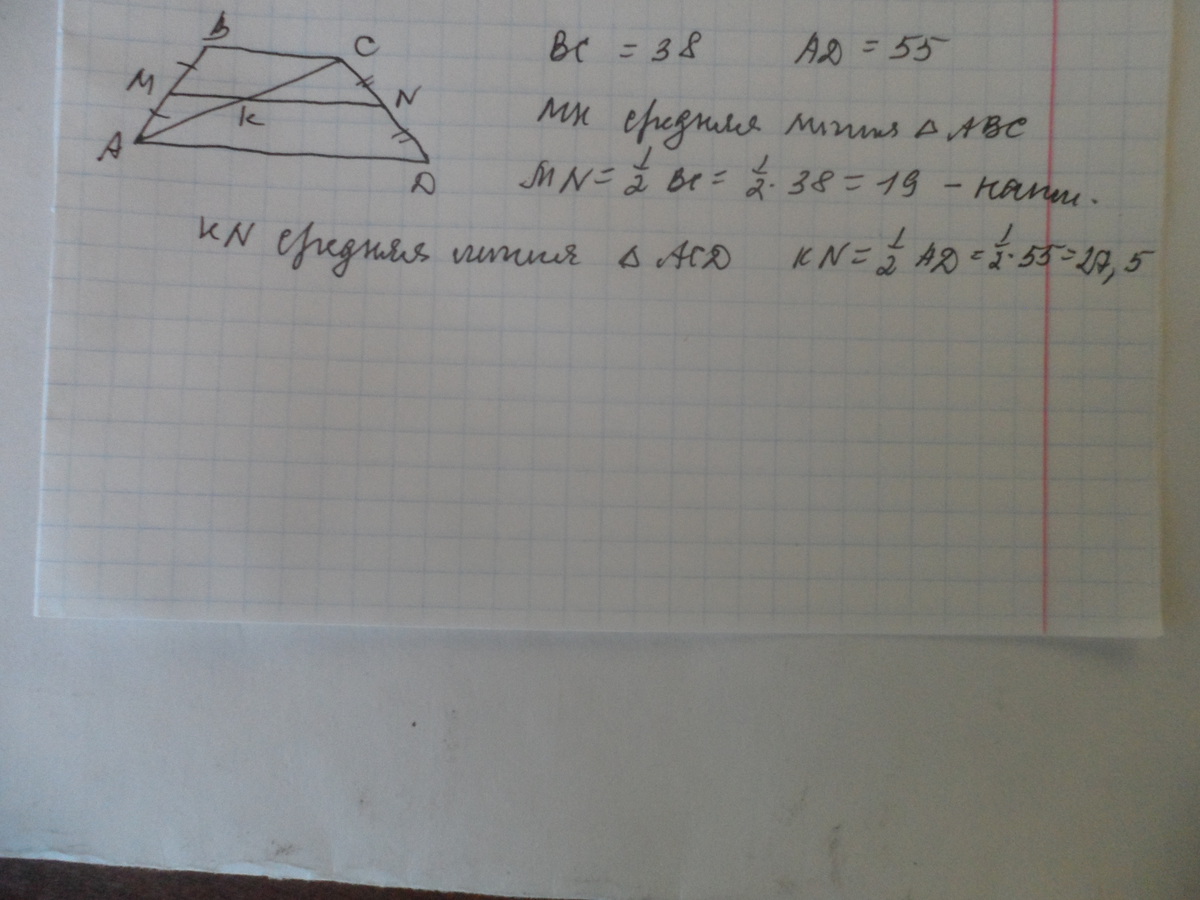 B
C
M
N
K
A
D
BC = 38 AD = 55
MK средняя линия △ ABC
MN = 1/2 BC = 1/2 · 38 = 19 –
KN средняя линия △ ACD KN = 1/2 AD = 1/2 · 55 = 27,5